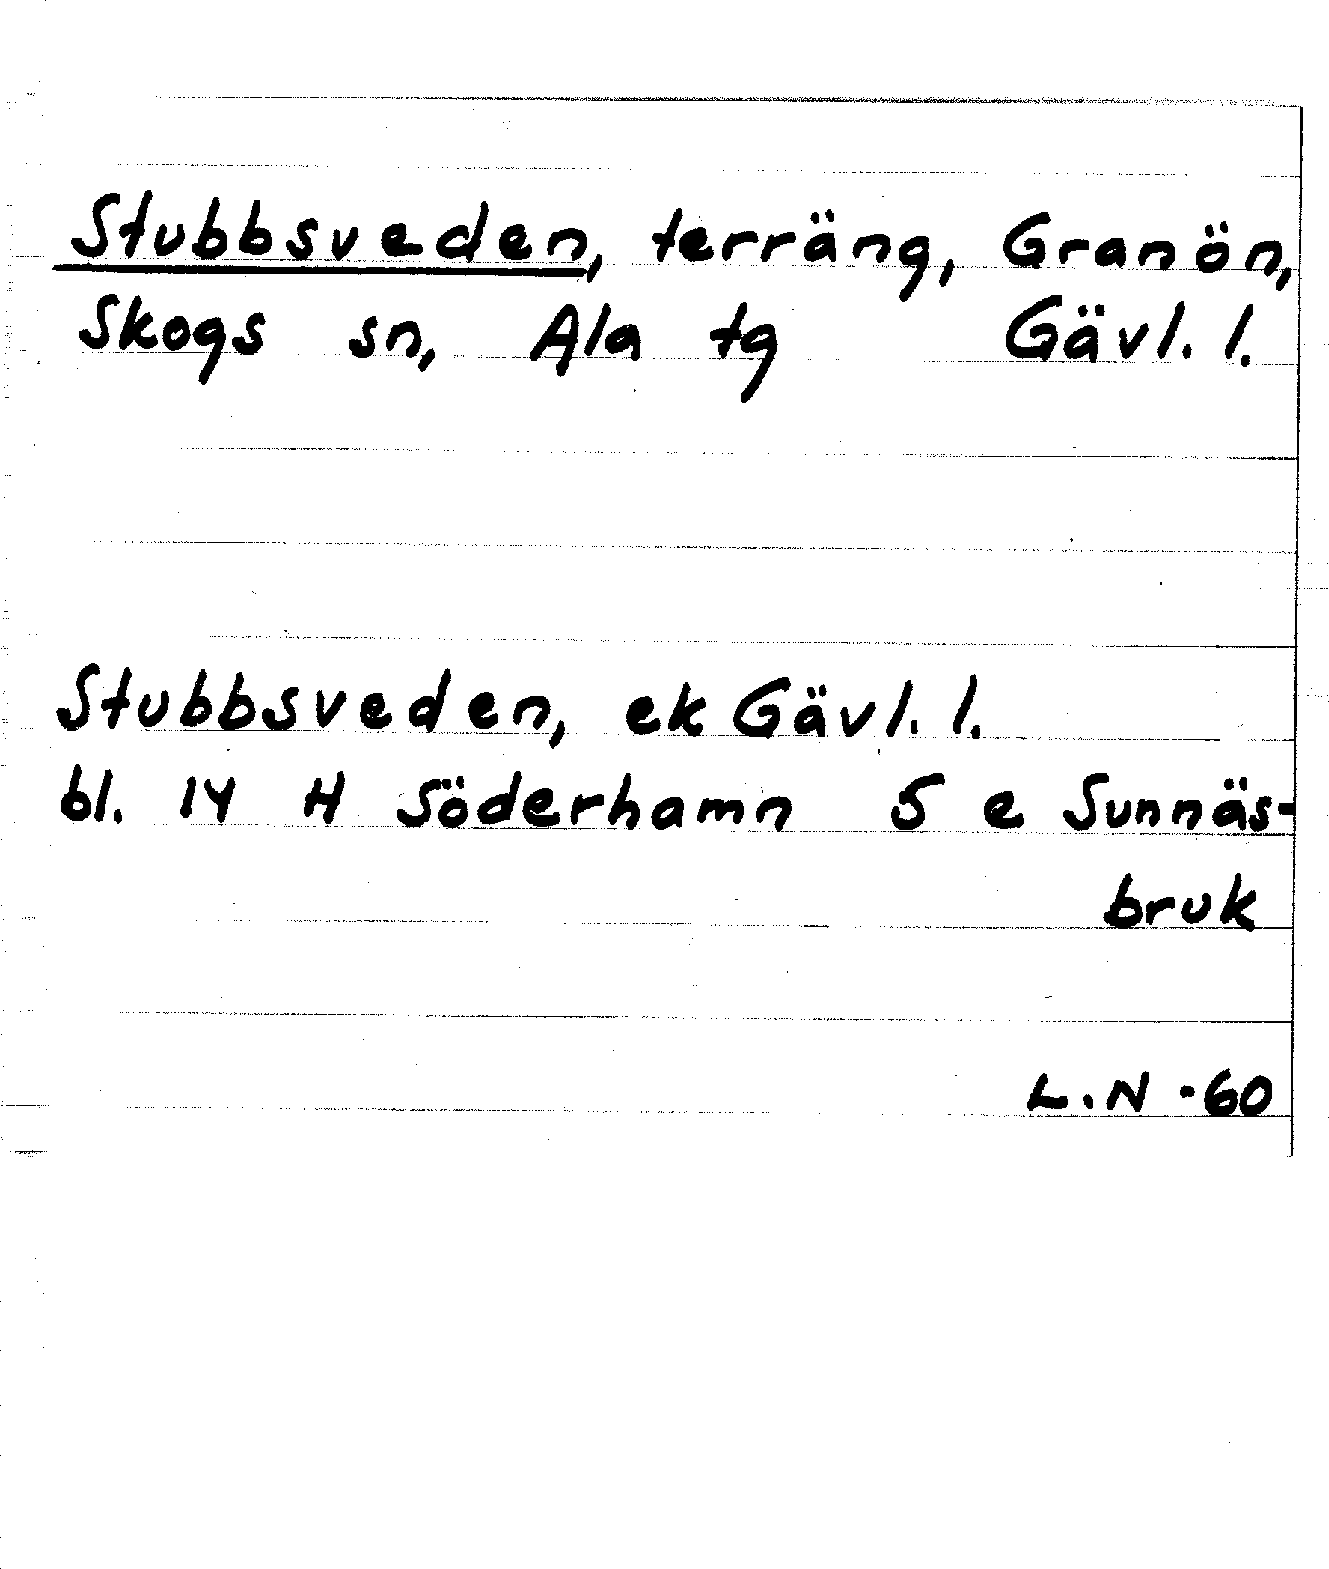 Stubbsveden, terräng, Granön,
Skogs sn, Ala tg Gävl. l.
Stubbsveden, ek Gävl. l.
bl. 14 H Söderhamn 5 e Sunnäs-
bruk
L.N -60